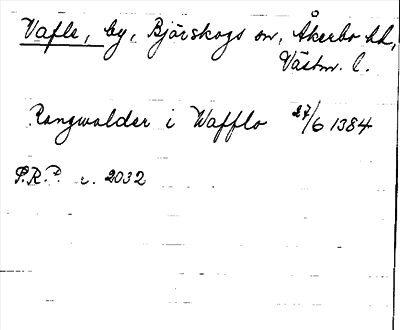 Vafle, by, Bjärskogs sn, Åkerbo hd,
Västm. l.
Rangwalder i Wafflo 27/6 1384
P.R.P. n. 2032